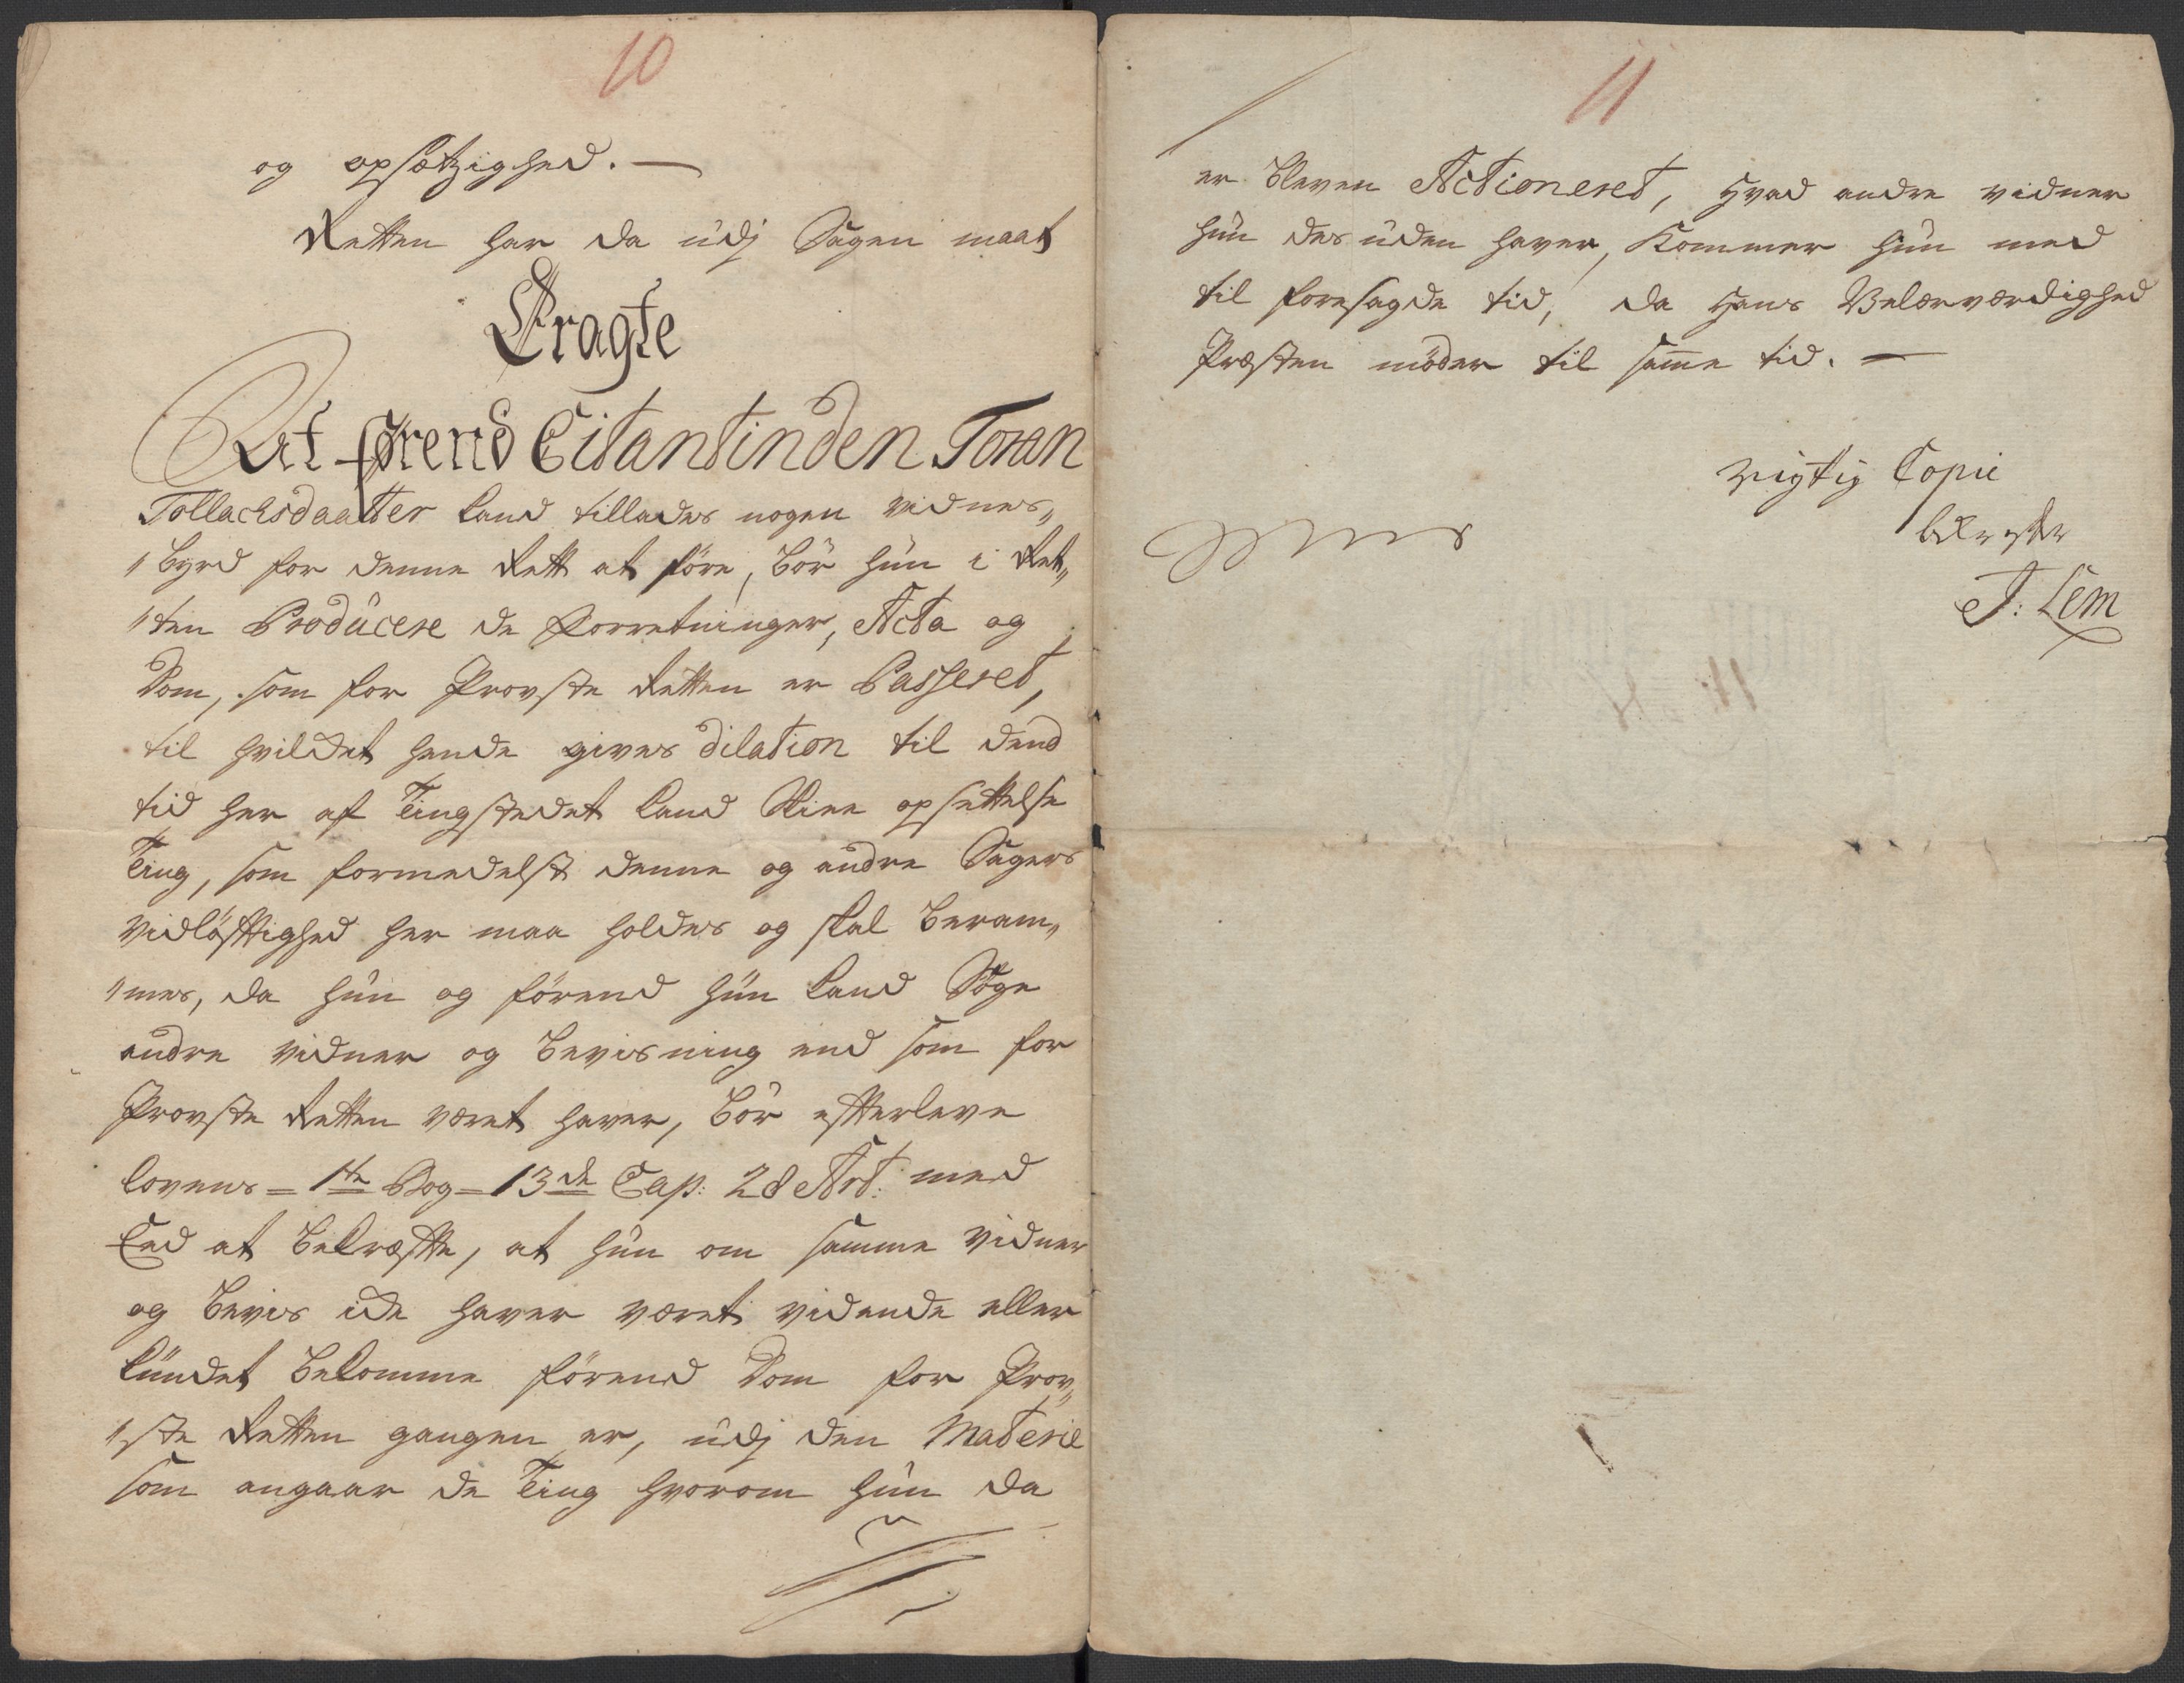 10
og opsætzighed. —
Retten har da udj Sagen maat
Eragte
At førend Citantinden Toran
Tollachsdaatter kand tillades nogen vidnes„
„byrd for denne Rett at före, bör hun i Ret„
„ten Producere de forretninger, Acta og
Dom, som for Provste Retten er Passeret,
til hvilcket hende gives dilation til dend
tid her af Tingstedet kand Skee opsettelse
Ting, som formedelst denne og andre Sagers
Vidlöfftighed her maa holdes og skal beram„
„mes, da hun og förend hun kand Söge
andre vidner og beviisning end som for
Provste Retten været haver, bör efterleve
lovens = 1te Bog = 13de Cap: 28 Art: med
Eed at bekræffte, at hun om samme vidner
og bevis icke haver været vidende eller
kundet bekomme förend Dom for Prov„
„ste Retten gangen er, udj den Materie
som angaar de Ting hvorom hun da
11
er bleven Actioneret, hvad andre vidner
hun des uden haver, kommer hun med
til foresagde tid, da hans Velærværdighed
Præsten möder til samme tid. —
rigtig Copie
T: Lem